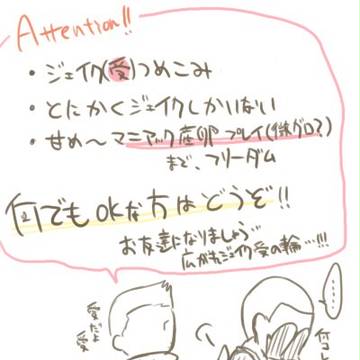 Attention!!
・ジェイク(受)つめこみ
・とにかくジェイクしかいない
・甘め〜マニアック産卵プレイ(微グロ?)
まで、フリーダム
何でもOKな方はどうぞ!!
お友達になりましょう
広がれジェイク受の輪…!!!
愛だよ
愛